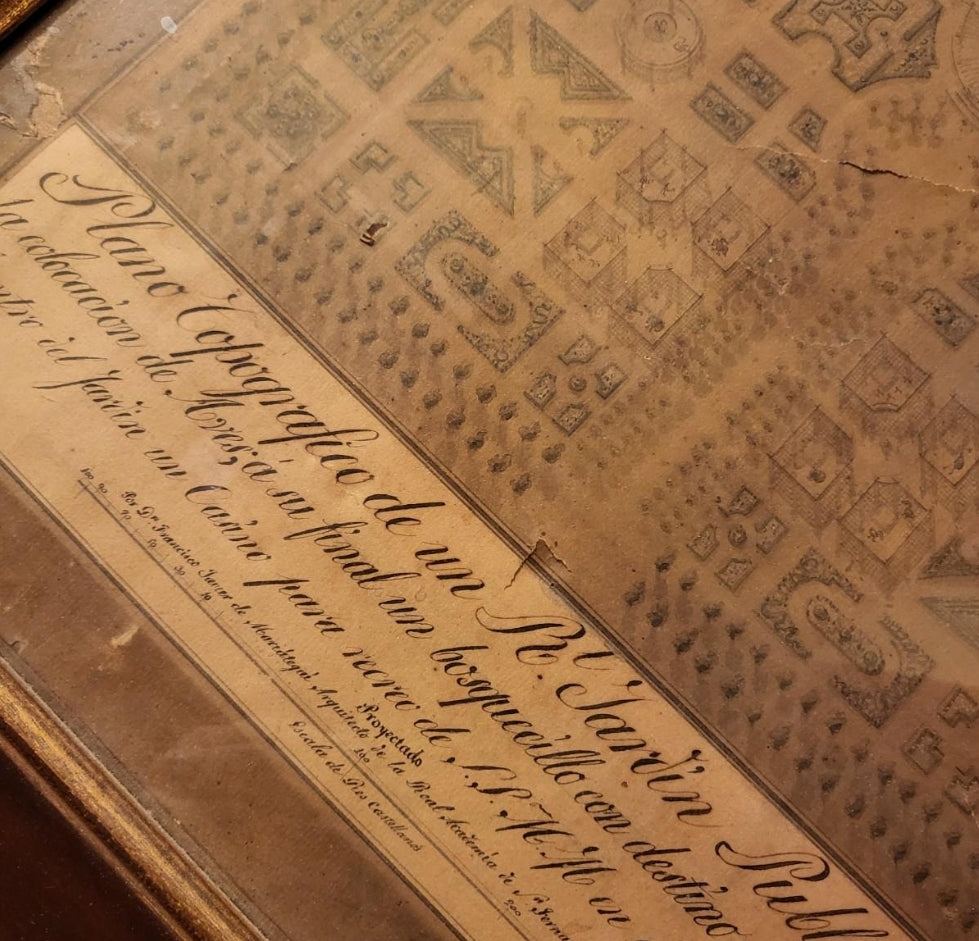 Plano Topografico de un Rl. Jardin Publ
la colocacion de Aves, á su final un bosquecillo con destino
ntro del Jardin un Casino para recreo de S.S. M.M. en
Proyectado
Por Dn. Francisco Javier de Mariátegui Arquitecto de la Real Academia de Sn. Ferna
100 90 70 50 30 10 100 200
Escala de Pies Castellanos